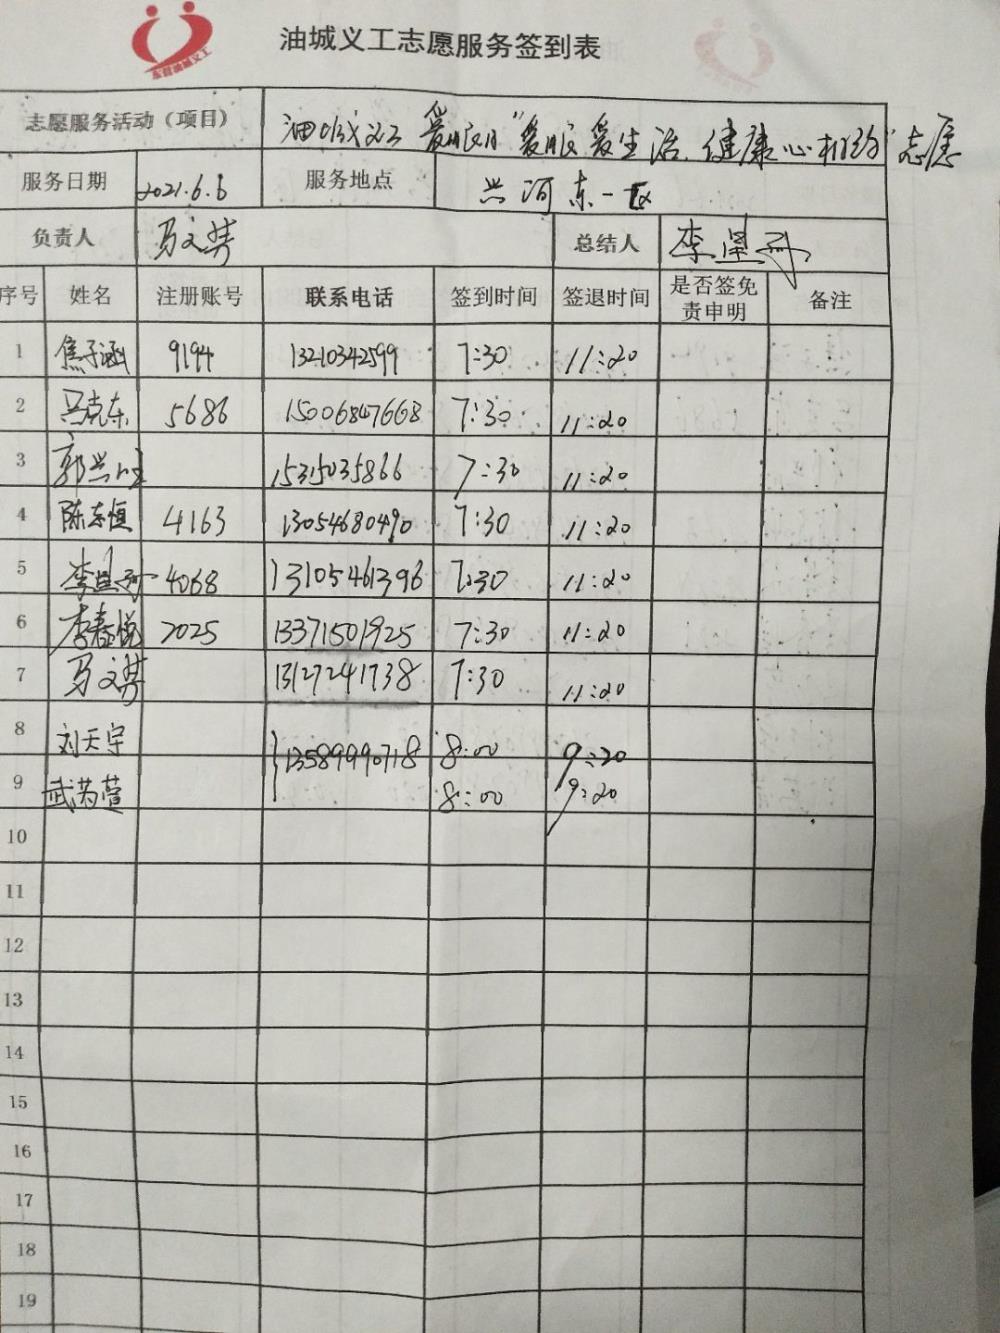 东营油城义工
油城义工志愿服务签到表
志愿服务活动（项目） 油城义工 爱眼月"爱眼爱生活.健康心相约"志愿
服务日期 2021.6.6 服务地点 兴河东一区
负责人 马文 总结人 李
序号 姓名 注册账号 联系电话 签到时间 签退时间 是否签免责申明 备注
1 焦子涵 9194 13210342599 7:30 11:20
2 马克东 5686 15006847668 7:30 11:20
3 郭兴旺 15315035866 7:30 11:20
4 陈志恒 4163 13054680490 7:30 11:20
5 李 4068 13105461396 7:30 11:20
6 李春悦 2025 13371501925 7:30 11:20
7 马文 13127241738 7:30 11:20
8 刘天宇 13589990718 8:00 9:20
9 武 萱 8:00 9:20
10
11
12
13
14
15
16
17
18
19